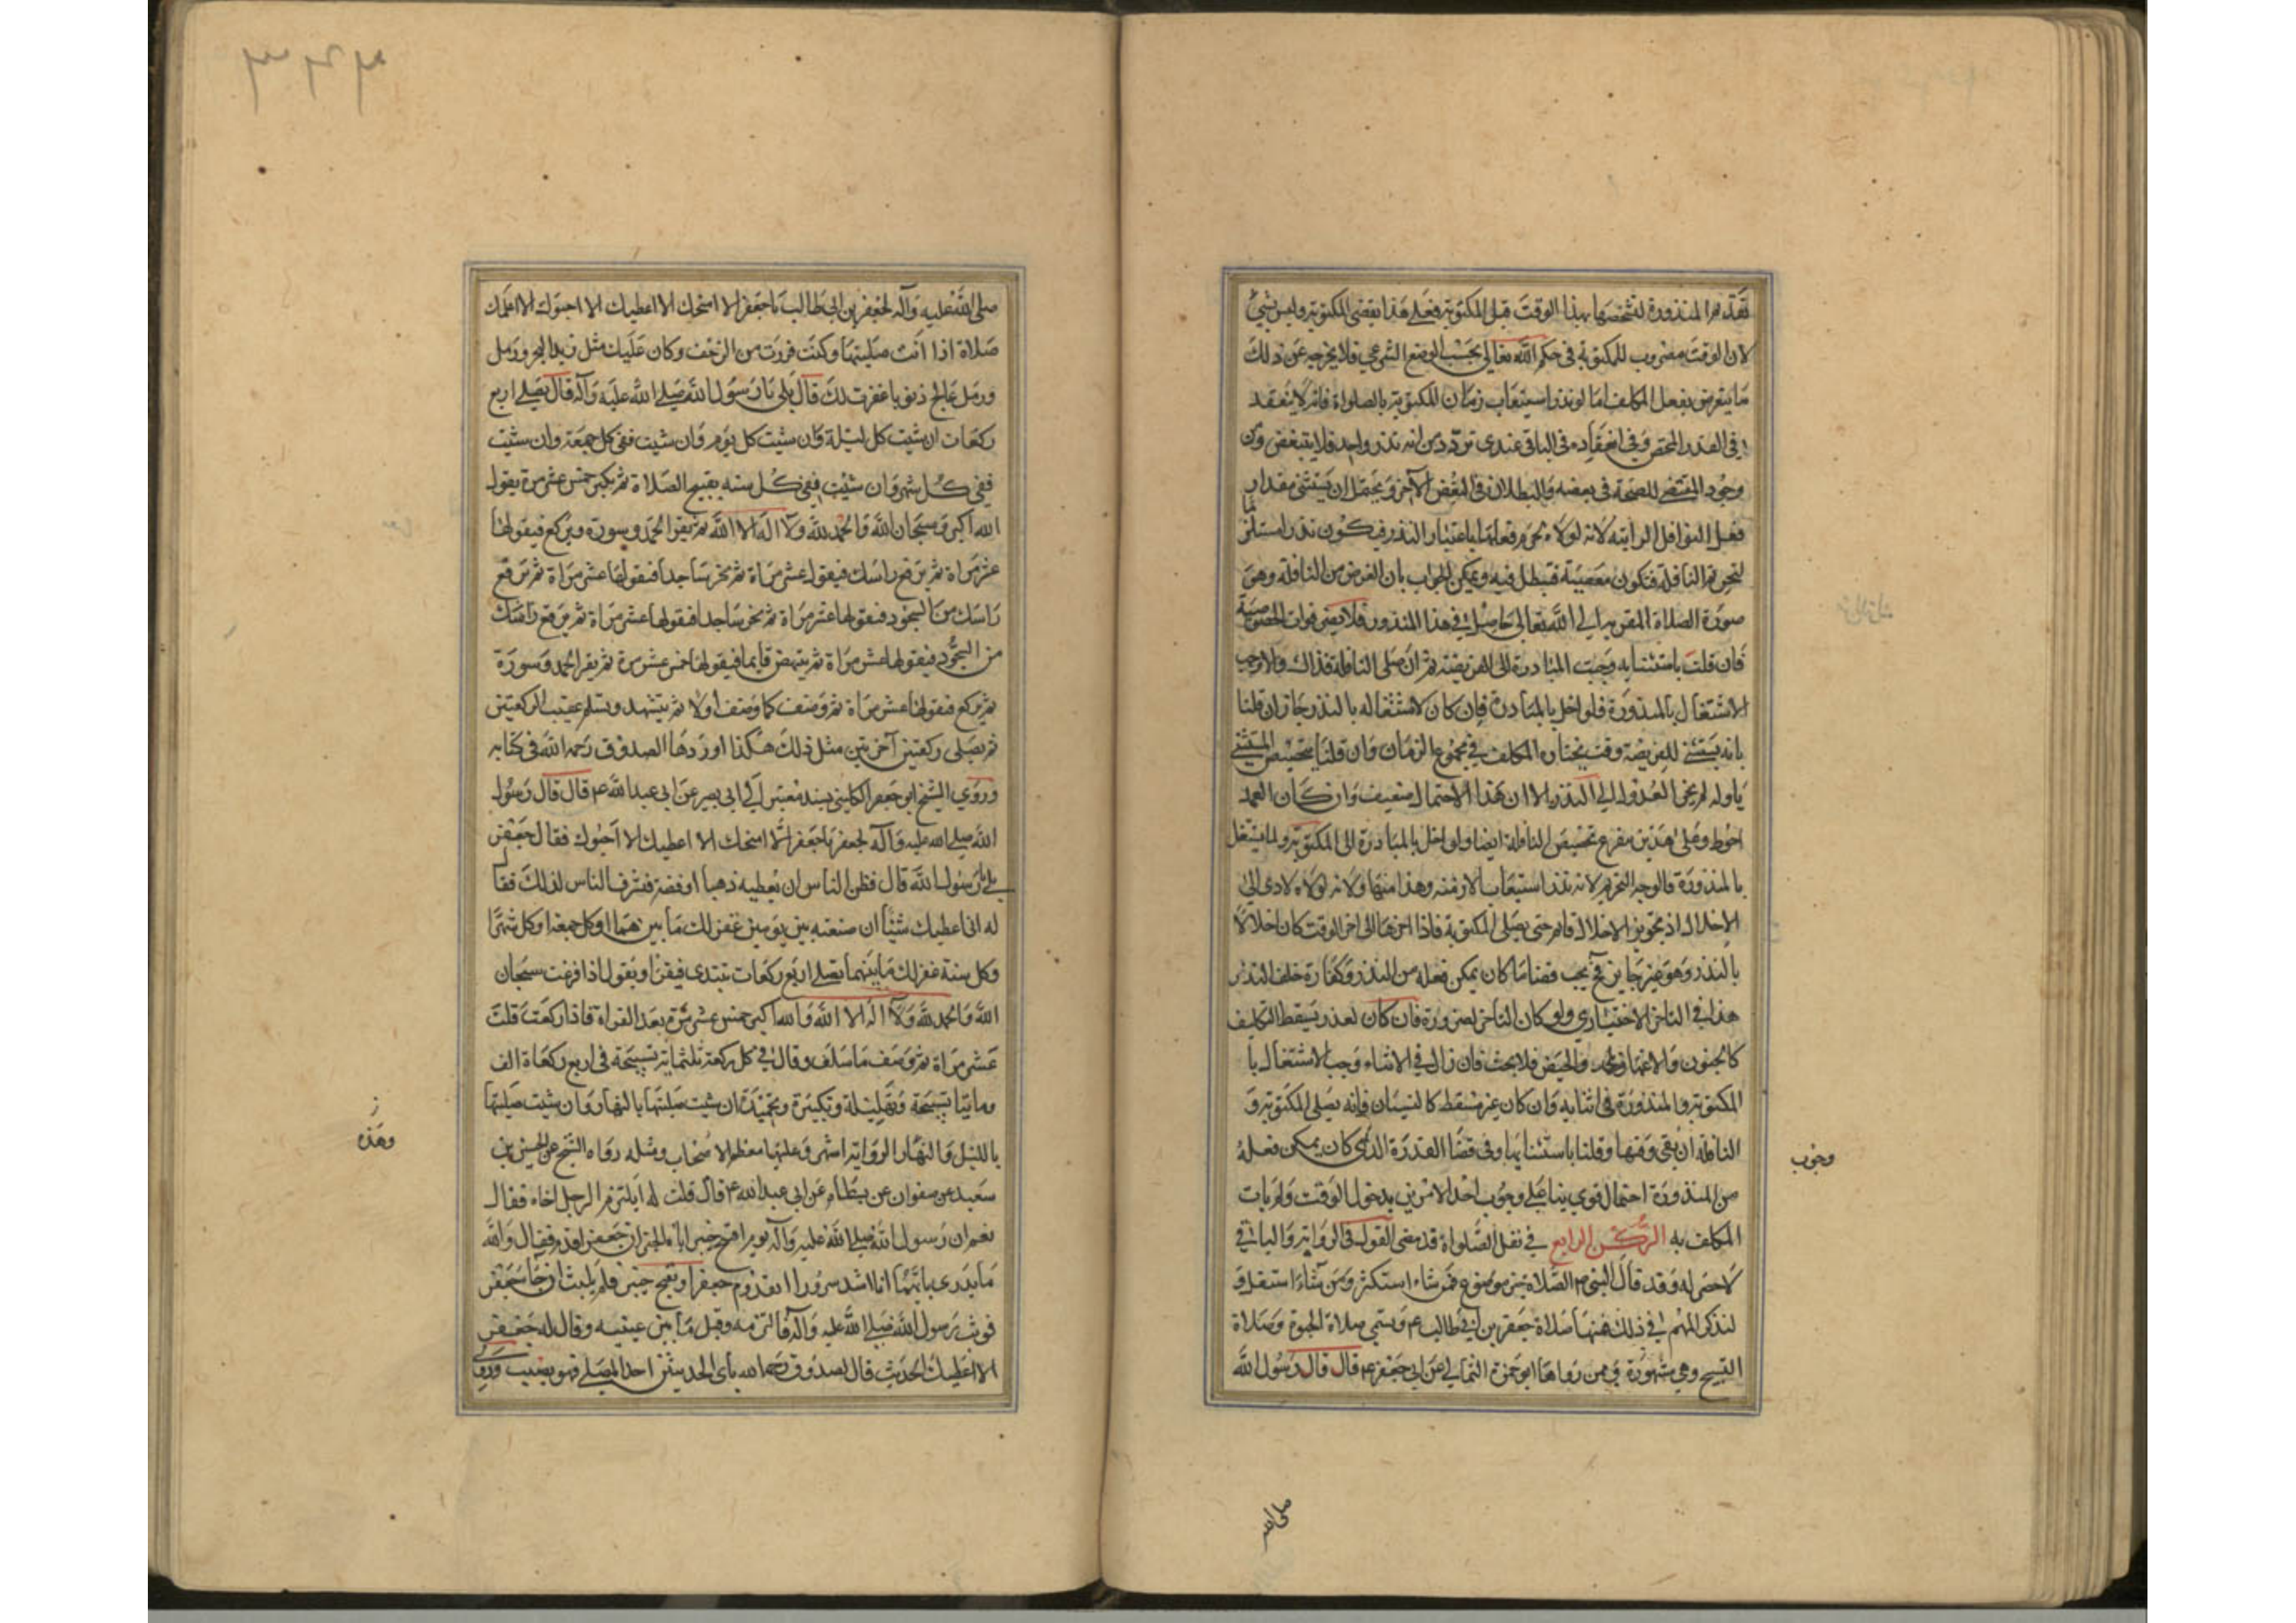 تقدم المنذورة لتشخصها بهذا الوقت قبل المكتوبة فعلى هذا يقضي المكتوبة وليس بشيء
لان الوقت مضروب للمكتوبة في حكم الله تعالى بحسب الوضع الشرعي فلا يخرجه عن ذلك
ما يتعرض بفعل المكلف اما لو نذر استيعاب زمان المكتوبة بالصلواة فانه لا ينعقد
في القدر المختص وفي انعقاده في الباقي عندي تردد من انه نذر واحد فلا يتبعض ومن
وجود المقتضي للصحة في بعضه والبطلان في البعض الآخر ويحتمل ان يستثنى مقدار
فعل النوافل الراتبة لانه لولاه تحرم فعلها باعتبار النذر فيكون نذرا مستلزما
لتحريم النافلة فتكون معصية فيبطل فيه ويمكن الجواب بان الغرض من النافلة وهي
صورة الصلاة المقربة الى الله تعالى حاصل في هذا المنذور فلا يضر فوات الخصوصية
فان قلت باستثنائه وجبت المبادرة الى الفريضة ثم ان صلى النافلة فذاك والا وجب
الاشتغال بالمنذورة فلو اخل بالمبادرة فان كان لاشتغاله بالنذر جاز ان قلنا
بانه يستثنى للفريضة وقت يختاره المكلف في مجموع الزمان وان قلنا بتخصيص المستثنى
باوله لم يجز العدول الى النذر الا ان هذا الاحتمال ضعيف وان كان العمد
احوط وعلى هذين يتفرع تخصيص النافلة ايضا ولو اخل بالمبادرة الى المكتوبة ولما يشتغل
بالمنذورة فالوجه التحريم لانه نذر استيعاب الازمنة وهذا منها ولانه لولاه لادى الى
الاخلال اذ تجويز الاخلال قائم حتى يصلى المكتوبة فاذا اخرها الى اخر الوقت كان اخلالا
بالنذر وهو غير جايز فح يجب قضا ما كان يمكن فعله من النذر وكفارة خلف النذر
هذا في التاخر الاختياري ولو كان التاخر لضرورة فان كان لعذر يسقط التكليف
كالجنون والاغماء والحيض فلا بحث فان زال في الاثناء وجب الاشتغال با
المكتوبة والمنذورة في اثنائه وان كان غير مسقط كالنسيان فانه يصلى المكتوبة و
النافلة ان بقي وقتها وقلنا باستثنائها وفي قضا القدرة الذي كان يمكن فعله
من المنذورة احتمال قوي بناء على وجوب احد الامرين بدخول الوقت ولم يات
المكلف به الركن الرابع في نفل الصلواة قد مضى القول في الرواتب والباقي
لا حصر له وقد قال النبي ص الصلاة خير موضوع فمن شاء استكثر ومن شاء استقل و
لنذكر المهم في ذلك فمنها صلاة جعفر بن ابي طالب ع وتسمى صلاة الحبوة وصلاة
التسبيح وهي مشهورة وممن رواها ابو حمزة الثمالي عن ابي جعفر ع قال قال رسول الله
وجوب
صلى الله
٣٢٣
صلى الله عليه وآله لجعفر بن ابي طالب يا جعفر الا امنحك الا اعطيك الا احبوك الا اعلمك
صلاة اذا انت صليتها وكنت فررت من الزحف وكان عليك مثل زبد البحر ورمل
ورمل عالج ذنوبا غفرت لك قال بلى يا رسول الله صلى الله عليه وآله قال تصلي اربع
ركعات ان شئت كل ليلة وان شئت كل يوم وان شئت ففي كل جمعة وان شئت
ففي كل شهر وان شئت ففي كل سنه يفتتح الصلاة ثم يكبر خمس عشر مرة يقول
الله اكبر وسبحان الله والحمد لله ولا اله الا الله ثم تقرا الحمد وسورة وتركع فيقولها
عشر مراة ثم ترفع راسك فيقول عشر مراة ثم تخر ساجدا فتقولها عشر مراة ثم ترفع
راسك من السجود فتقولها عشر مراة ثم تخر ساجدا فتقولها عشر مراة ثم ترفع راسك
من السجود فتقولها عشر مراة ثم ينهض قايما فيقولها خمس عشر مرة ثم يقرا الحمد وسورة
ثم يركع فتقولها عشر مراة ثم وصف كما وصف اولا ثم تتشهد وتسلم عقيب الركعتين
ثم يصلى ركعتين آخرتين مثل ذلك هكذا اوردها الصدوق رحمه الله في كتابه
وروي الشيخ ابو جعفر الكليني بسند معتبر الى ابي بصير عن ابي عبد الله ع قال قال رسول
الله صلى الله عليه وآله لجعفر يا جعفر الا امنحك الا اعطيك الا احبوك فقال جعفر
بلى يا رسول الله قال فظن الناس ان يعطيه ذهبا او فضة فتشرف الناس لذلك فقال
له انى اعطيك شيئا ان صنعته بين يومين غفر لك ما بينهما او كل جمعة او كل شهر
وكل سنة غفر لك ما بينهما تصلى اربع ركعات تبتدى فيقرا ويقول اذا فرغت سبحان
الله والحمد لله ولا اله الا الله والله اكبر خمس عشر مرة بعد القراة فاذا ركعت قلت
عشر مراة ثم وصف ما سلف وقال في كل ركعة ثلثماية تسبيحة في اربع ركعاة الف
ومايتا تسبيحة وتهليلة وتكبيرة وتحميدة ان شئت صليتها بالنهار وان شئت صليتها
بالليل والنهار الرواية اشهر وعليها معظم الاصحاب ومثله رواه الشيخ عن الحسين بن
سعيد عن صفوان عن بسطام عن ابي عبد الله ع قال قلت له ايلتزم الرجل اخاه فقال
نعم ان رسول الله صلى الله عليه وآله يوم افتتح خيبر اتاه الخبر ان جعفرا قدم فقال والله
ما يدرى بايهما انا اشد سرورا بقدوم جعفر او بفتح خيبر فلم يلبث ان جا جعفر
فوثب رسول الله صلى الله عليه وآله فالتزمه وقبل ما بين عينيه وقال له جعفر
الا اعطيك الحديث قال الصدوق رحمه الله باى الحديثين اخذ المصلى فهو مصيب وروى
وهذه